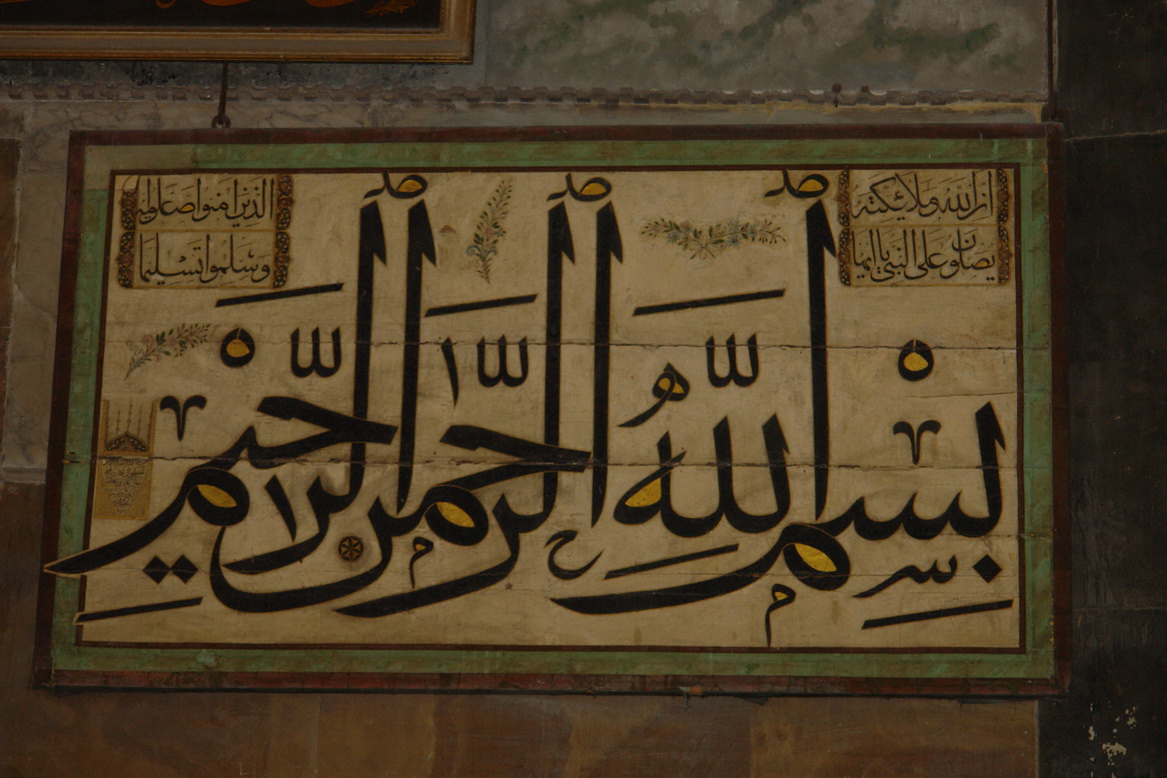 ان الله وملائكته
يصلون على النبي يا ايها
الذين امنوا صلوا عليه
وسلموا تسليما
بسم الله الرحمن الرحيم